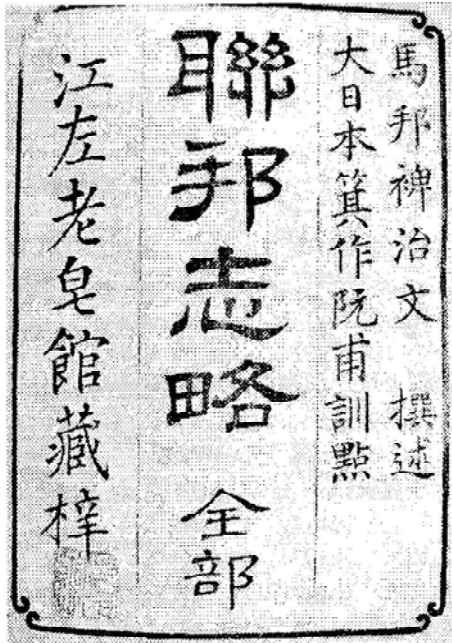 馬邦裨治文 撰述
大日本箕作阮甫訓點
聯邦志略 全部
江左老皂館藏梓